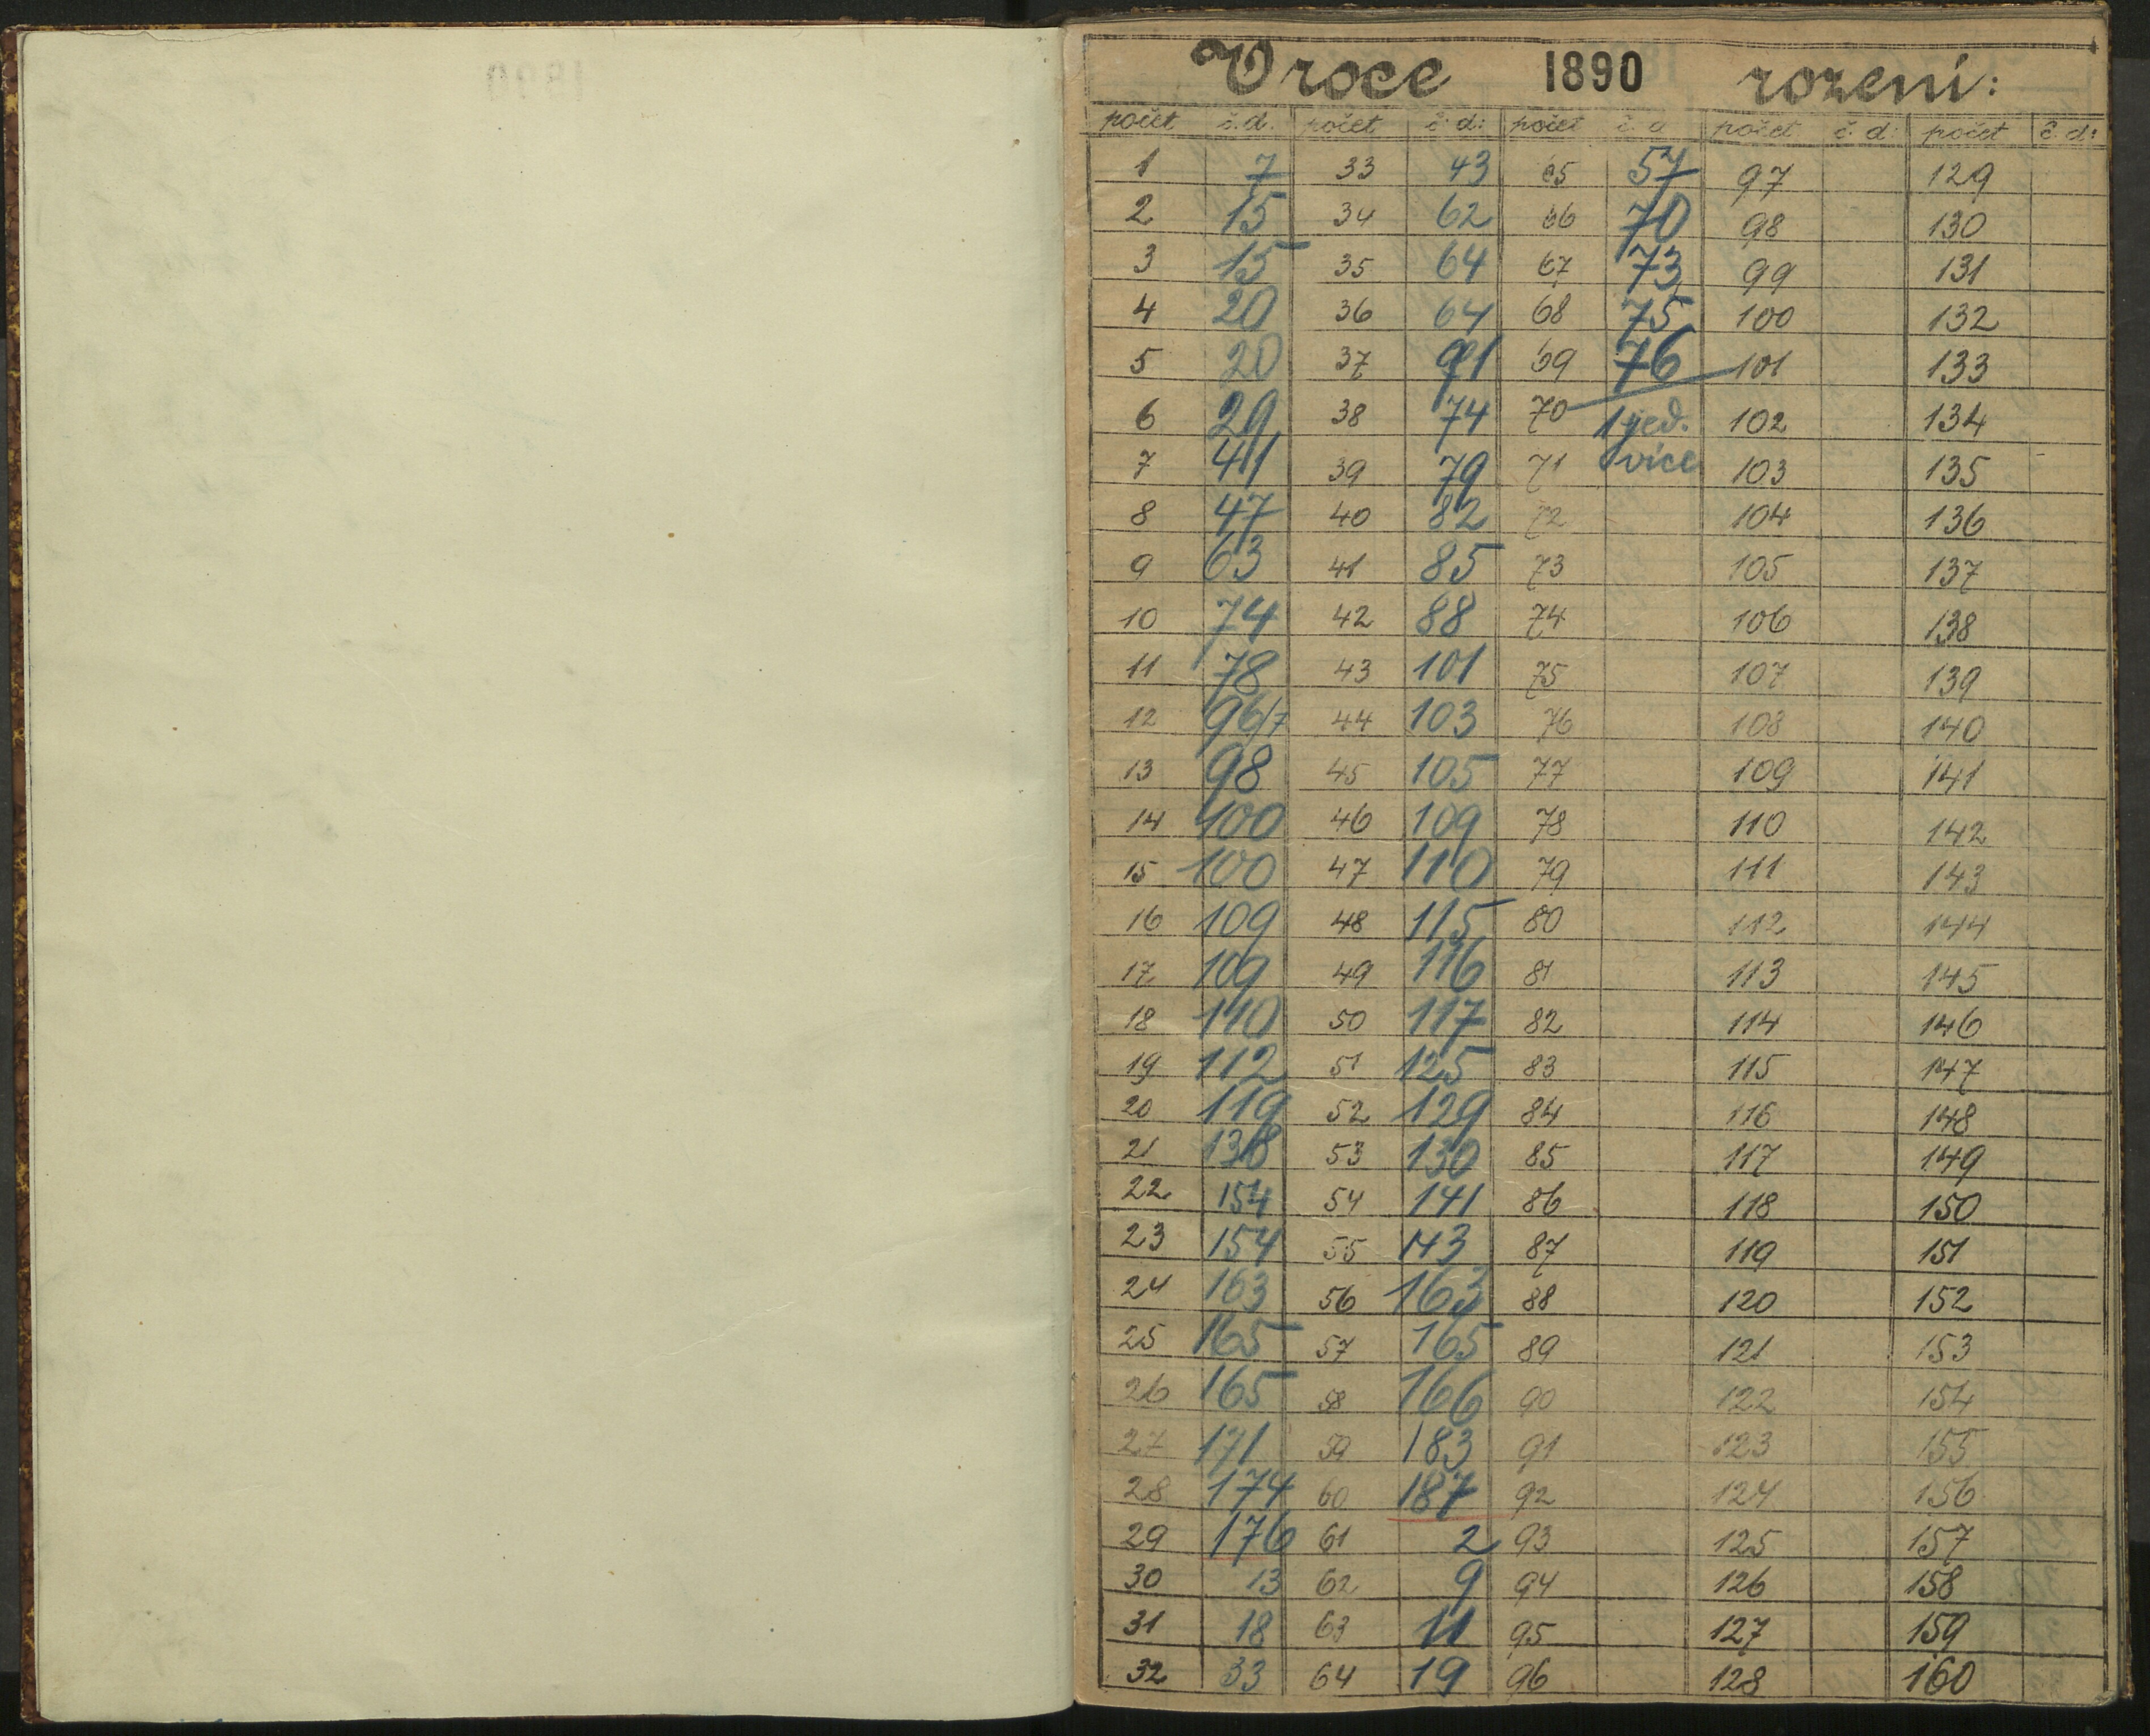 V roce 1890 rození:
počet č.d. počet č.d: počet č.d počet č.d: počet č.d:
1 7 33 43 65 57 97 129
2 15 34 62 66 70 98 130
3 15 35 64 67 73 99 131
4 20 36 64 68 75 100 132
5 20 37 69 76 101 133
6 29 38 74 70 1 jed. 102 134
7 41 39 79 71 více 103 135
8 47 40 82 72 104 136
9 63 41 85 73 105 137
10 74 42 88 74 106 138
11 78 43 101 75 107 139
12 96/7 44 103 76 108 140
13 98 45 105 77 109 141
14 100 46 109 78 110 142
15 100 47 110 79 111 143
16 109 48 115 80 112 144
17 109 49 116 81 113 145
18 110 50 117 82 114 146
19 112 51 125 83 115 147
20 119 52 129 84 116 148
21 138 53 130 85 117 149
22 154 54 141 86 118 150
23 154 55 143 87 119 151
24 163 56 163 88 120 152
25 165 57 165 89 121 153
26 165 58 166 90 122 154
27 171 59 183 91 123 155
28 174 60 187 92 124 156
29 176 61 2 93 125 157
30 13 62 9 94 126 158
31 18 63 11 95 127 159
32 33 64 19 96 128 160